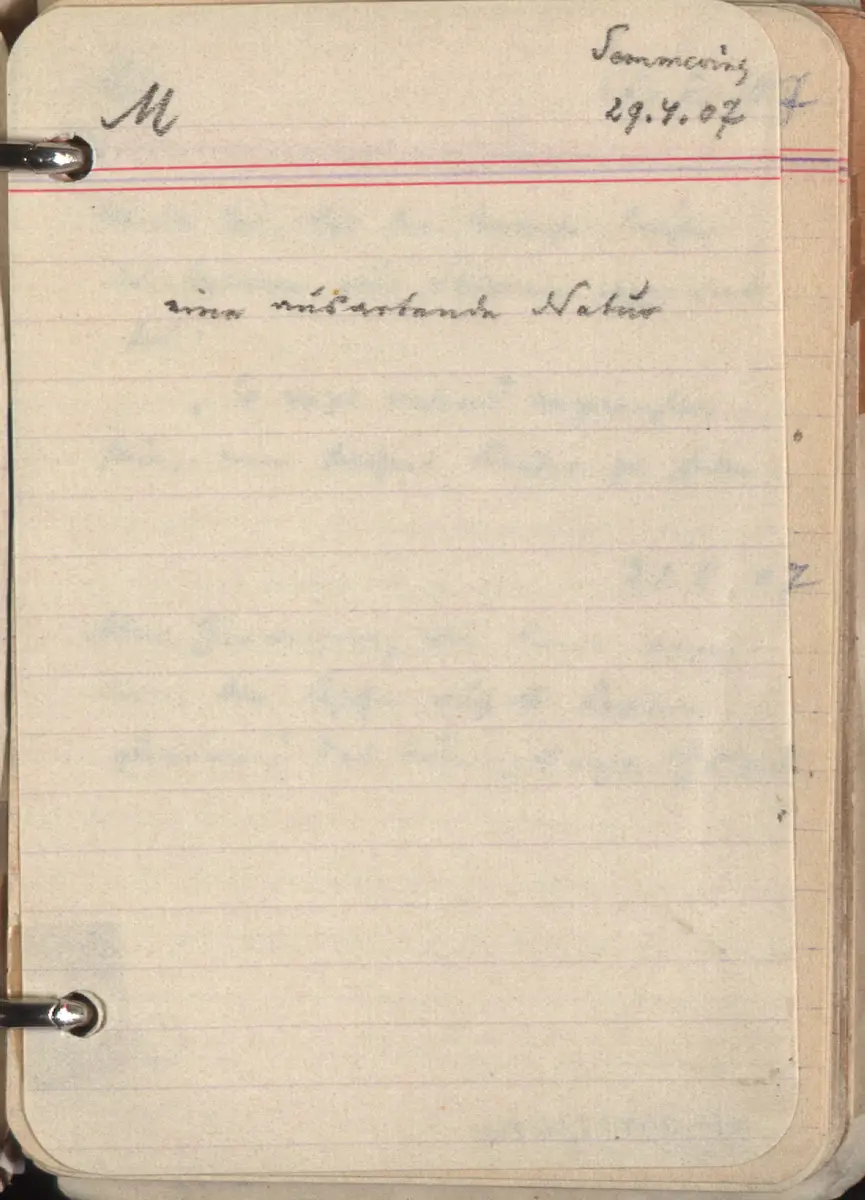 Sommering
M
29.4.07
eine ausartende Natur